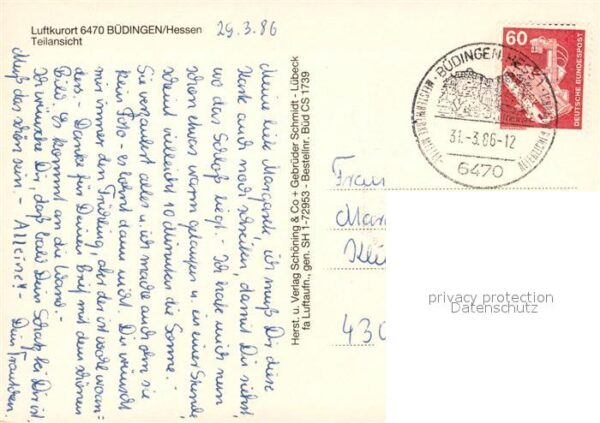 Luftkurort 6470 BÜDINGEN/Hessen
Teilansicht
29.3.86
Meine liebe Margarete, ich muß Dir diese
Karte auch noch schreiben, damit Du siehst,
wo das Schloß liegt. - Ich habe mich nun
schon etwas warm gelaufen u. in einer Stunde
scheint vielleicht 10 Minuten die Sonne.
Sie verzaubert alles u. ich mache auch ohne sie
kein Foto - es lohnt dann nicht. Du wünscht
mir immer den Frühling, aber der ist wohl woan-
ders. - Danke für Deinen Brief mit dem schönen
Bild. Es kommt an die Wand. -
Ich wünsche Dir, daß bald Dein Schatz bei Dir ist.
Muß das schön sein. - Alleine!! - Dein
Herst. u. Verlag Schöning & Co + Gebrüder Schmidt · Lübeck
fa Luftaufn., gen. SH 1-72953 - Bestellnr. Büd CS 1739
60
DEUTSCHE BUNDESPOST
BÜDINGEN, HESS
31.-3.86-12
6470
Frau
Mar
Kl
430
privacy protection
Datenschutz